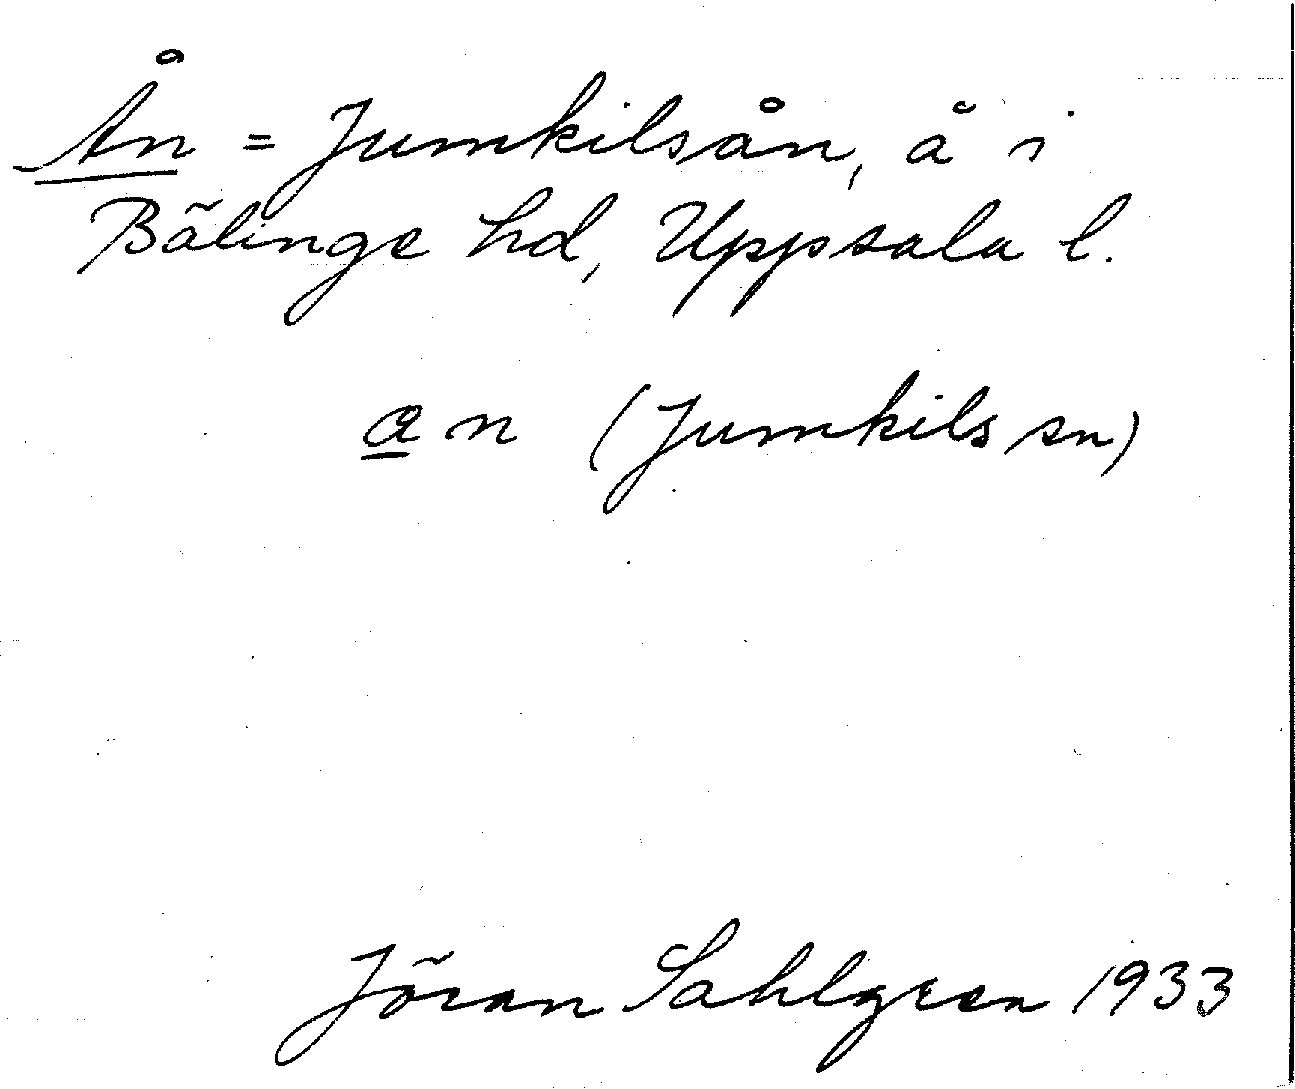 Ån = Jumkilsån, å i
Bälinge hd, Uppsala l.
a̲n (Jumkils sn)
Jöran Sahlgren 1933